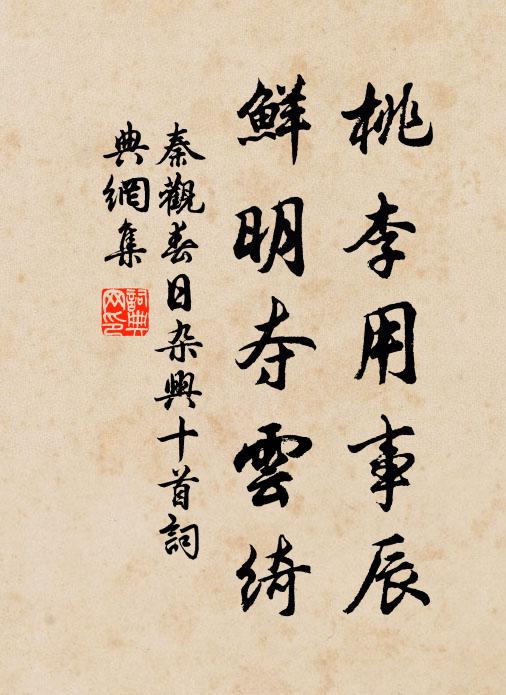 桃李用事辰
鮮明夺雲绮
秦觀春日杂興十首詞
典網集
詞典
网印